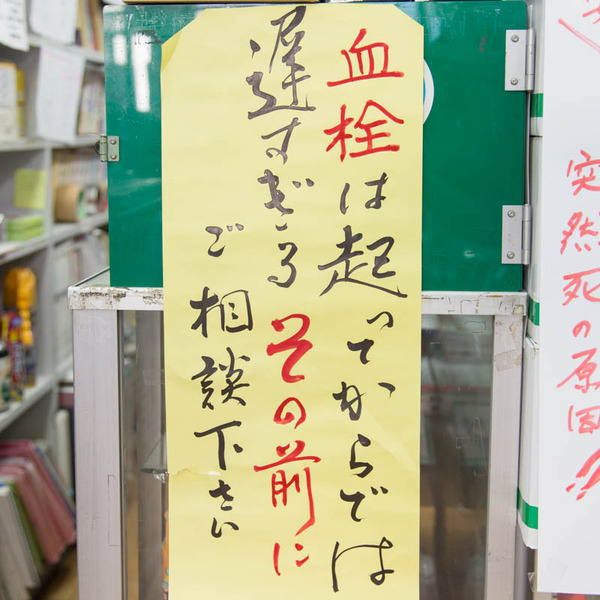 血栓は起ってからでは
遅すぎるその前に
ご相談下さい
突然死の原因!!